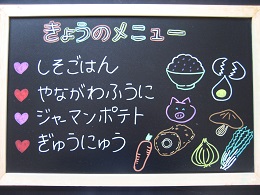 きょうのメニュー
しそごはん
やながわふうに
ジャーマンポテト
ぎゅうにゅう